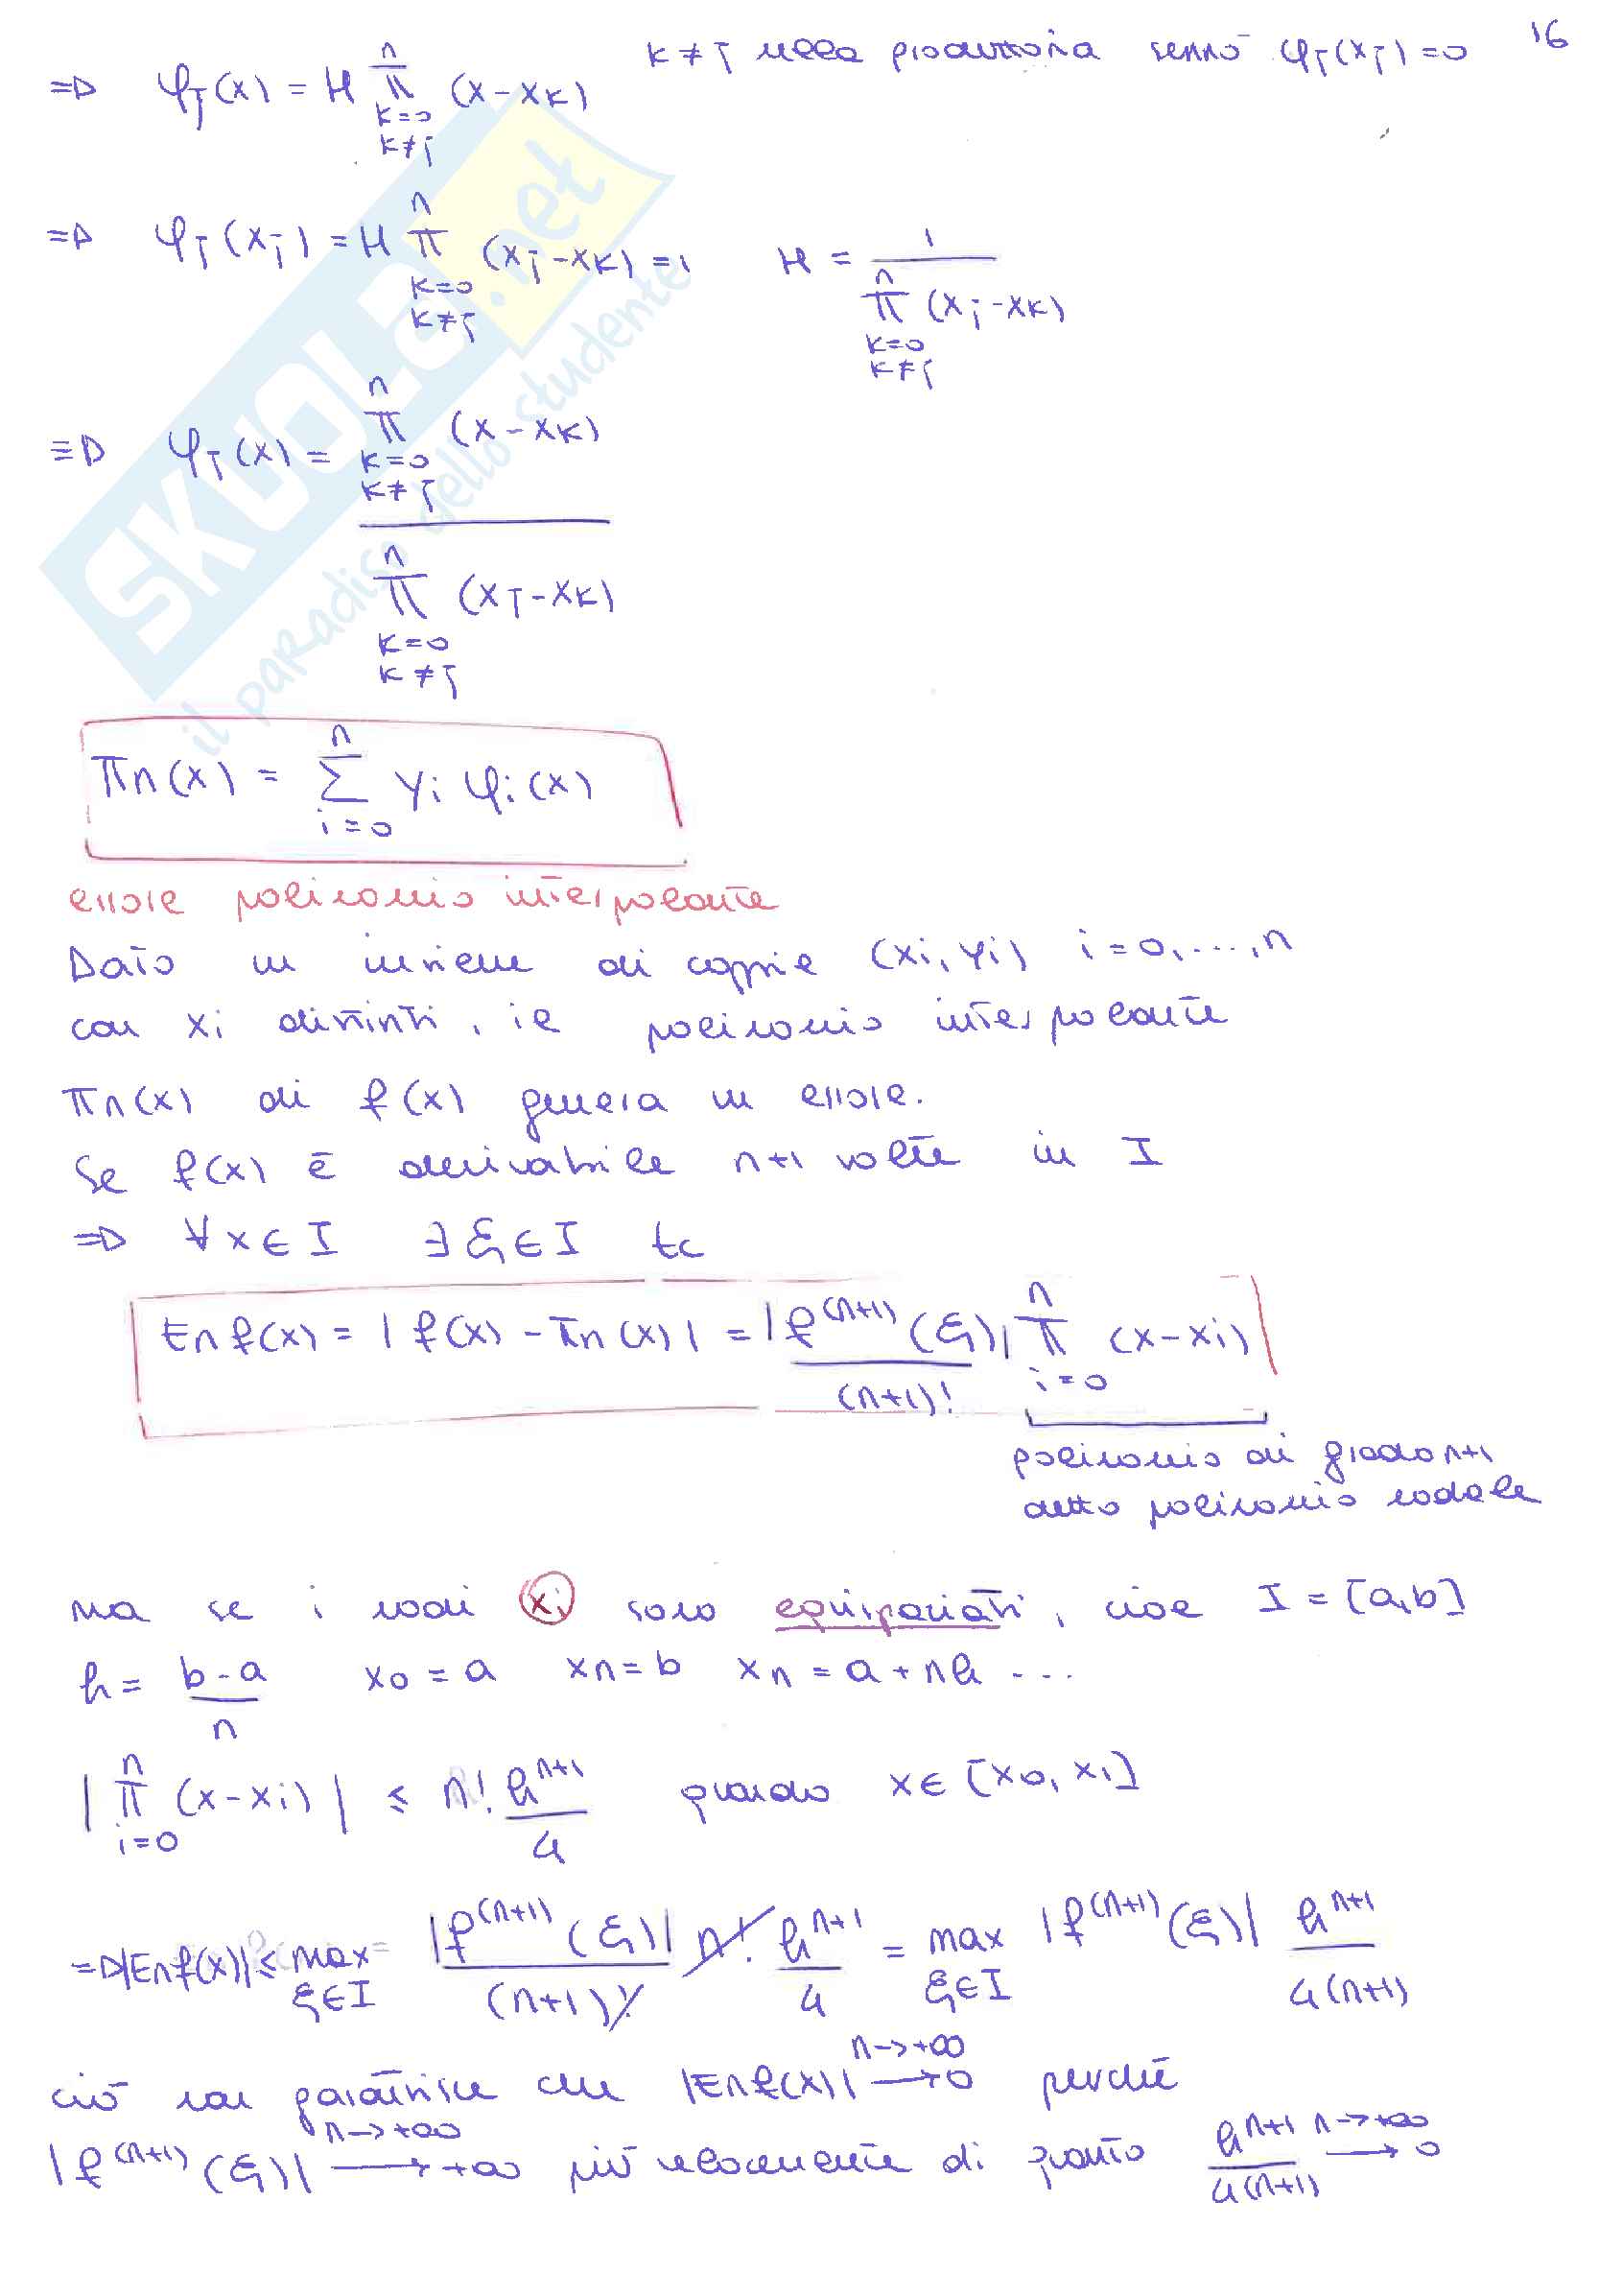 k≠j nella produttoria sennò φj(xj)=0 16
=> φj(x) = H ∏ n k=0 k≠j (x-xk)
=> φj(xj) = H ∏ n k=0 k≠j (xj-xk) = 1 H = 1 / ∏ n k=0 k≠j (xj-xk)
=> φj(x) = ∏ n k=0 k≠j (x-xk) / ∏ n k=0 k≠j (xj-xk)
SKUOLA.net
il paradiso dello studente
πn(x) = Σ n i=0 yi φi(x)
errore polinomio interpolante
Dato un insieme di coppie (xi, yi) i=0,...,n
con xi distinti, il polinomio interpolante
πn(x) di f(x) genera un errore.
Se f(x) è derivabile n+1 volte in I
=> ∀x∈I ∃ξ∈I tc
Enf(x) = |f(x) - πn(x)| = |f^(n+1)(ξ)| / (n+1)! ∏ n i=0 (x-xi)
polinomio di grado n+1
detto polinomio nodale
ma se i nodi xi sono equispaziati, cioè I = [a,b]
h = b-a / n x0 = a xn = b xn = a+nh ...
|∏ n i=0 (x-xi)| ≤ n! h^n+1 / 4 quando x∈[x0, x1]
=> |Enf(x)| ≤ max ξ∈I |f^(n+1)(ξ)| / (n+1)! n! h^n+1 / 4 = max ξ∈I |f^(n+1)(ξ)| h^n+1 / 4(n+1)
ciò non garantisce che |Enf(x)| n→+∞ → 0 perché
|f^(n+1)(ξ)| n→+∞ → +∞ più velocemente di quanto h^n+1 / 4(n+1) n→+∞ → 0